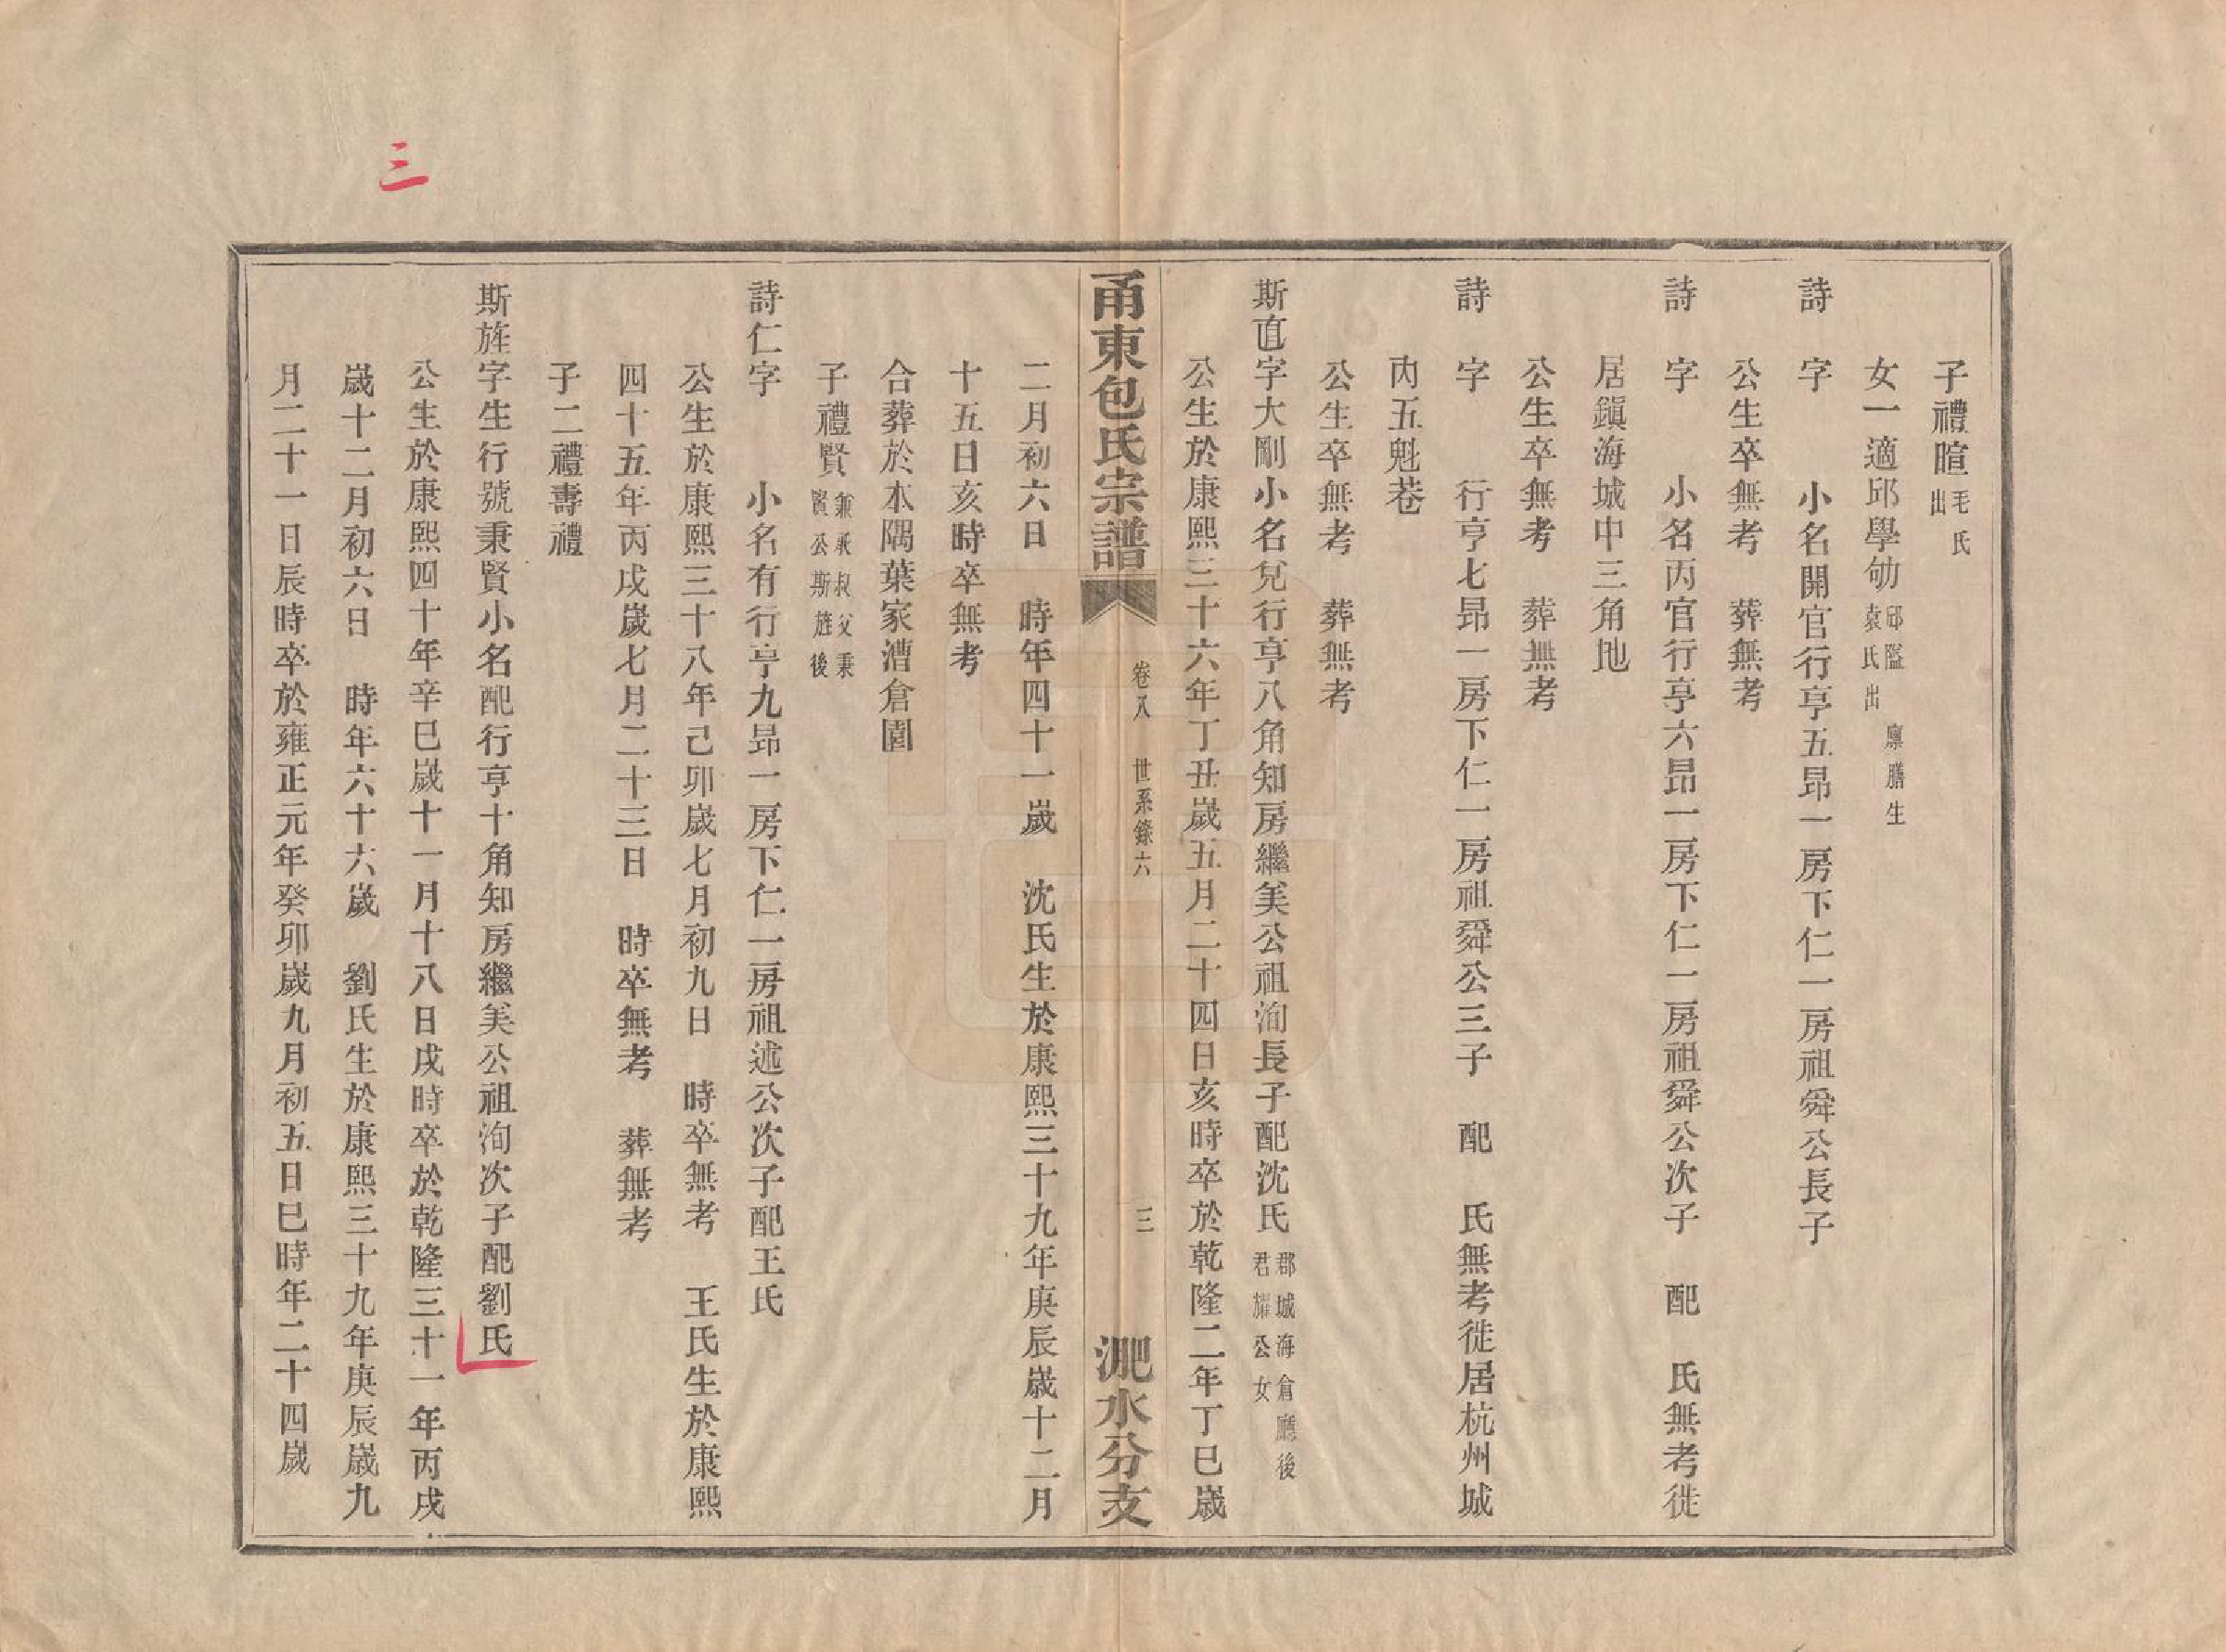 子禮暄毛氏出
女一適邱學劬邱隘 廩膳生袁氏出
詩 字 小名開官行亨五昻一房下仁一房祖舜公長子
公生卒無考 葬無考
詩 字 小名丙官行亨六昻一房下仁一房祖舜公次子 配 氏無考徙
居鎭海城中三角地
公生卒無考 葬無考
詩 字 行亨七昻一房下仁一房祖舜公三子 配 氏無考徙居杭州城
內五魁巷
公生卒無考 葬無考
斯直字大剛小名兌行亨八角知房繼美公祖洵長子配沈氏郡城海倉廳後君耀公女
公生於康熙三十六年丁丑歲五月二十四日亥時卒於乾隆二年丁巳歲
甬東包氏宗譜 卷八 世系錄六 三 淝水分支
二月初六日 時年四十一歲 沈氏生於康熙三十九年庚辰歲十二月
十五日亥時卒無考
合葬於本隅葉家漕倉園
子禮賢兼承叔父秉賢公斯旌後
詩仁字 小名有行亨九昻一房下仁一房祖述公次子配王氏
公生於康熙三十八年己卯歲七月初九日 時卒無考 王氏生於康熙
四十五年丙戌歲七月二十三日 時卒無考 葬無考
子二禮壽禮
斯旌字生行號秉賢小名配行亨十角知房繼美公祖洵次子配劉氏
公生於康熙四十年辛巳歲十一月十八日戌時卒於乾隆三十一年丙戌
歲十二月初六日 時年六十六歲 劉氏生於康熙三十九年庚辰歲九
月二十一日辰時卒於雍正元年癸卯歲九月初五日巳時年二十四歲
三